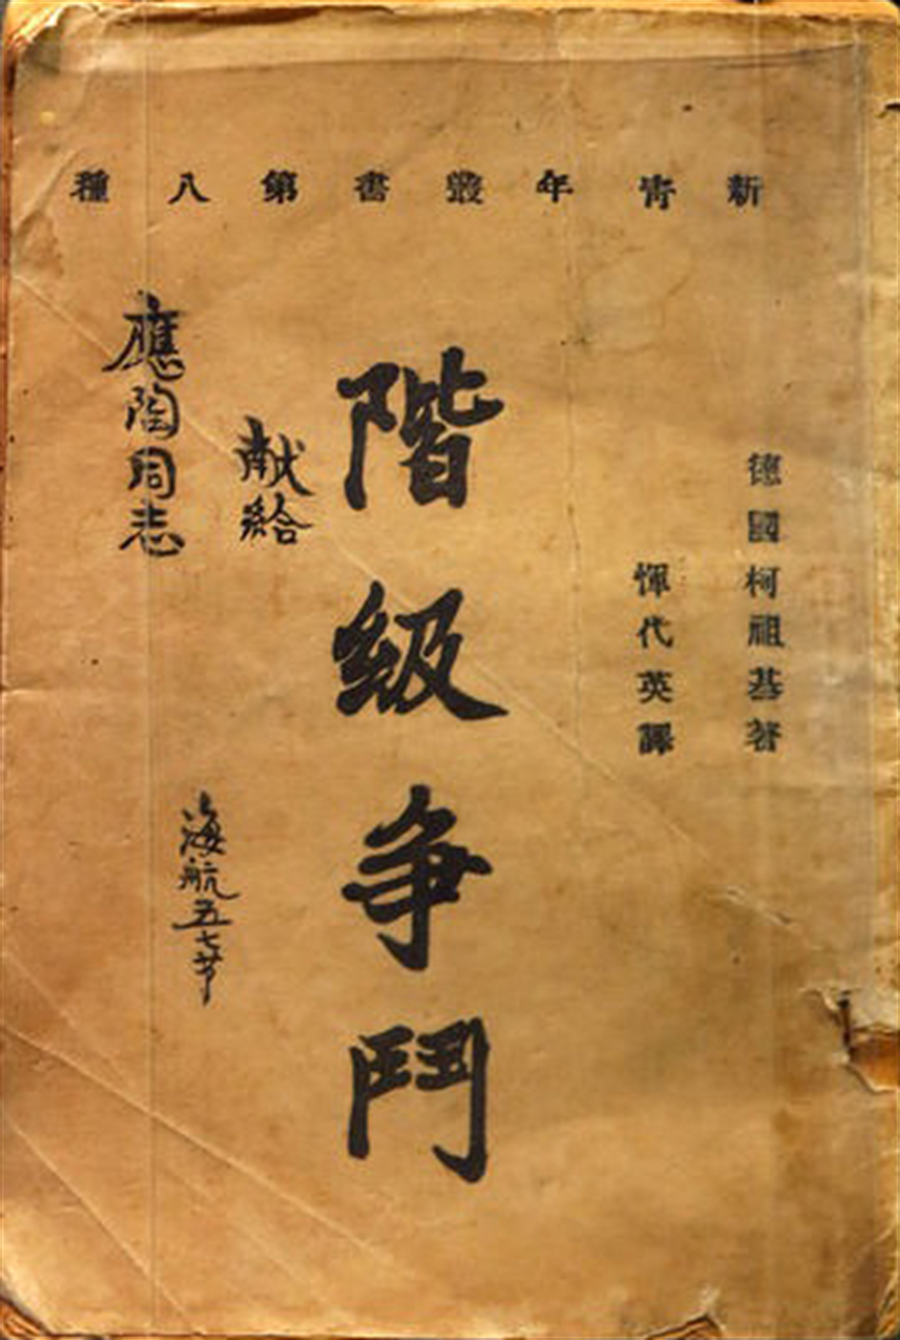 新青年叢書第八種
德國柯祖基著
惲代英譯
階級争鬥
献給
應陶同志
海航五七